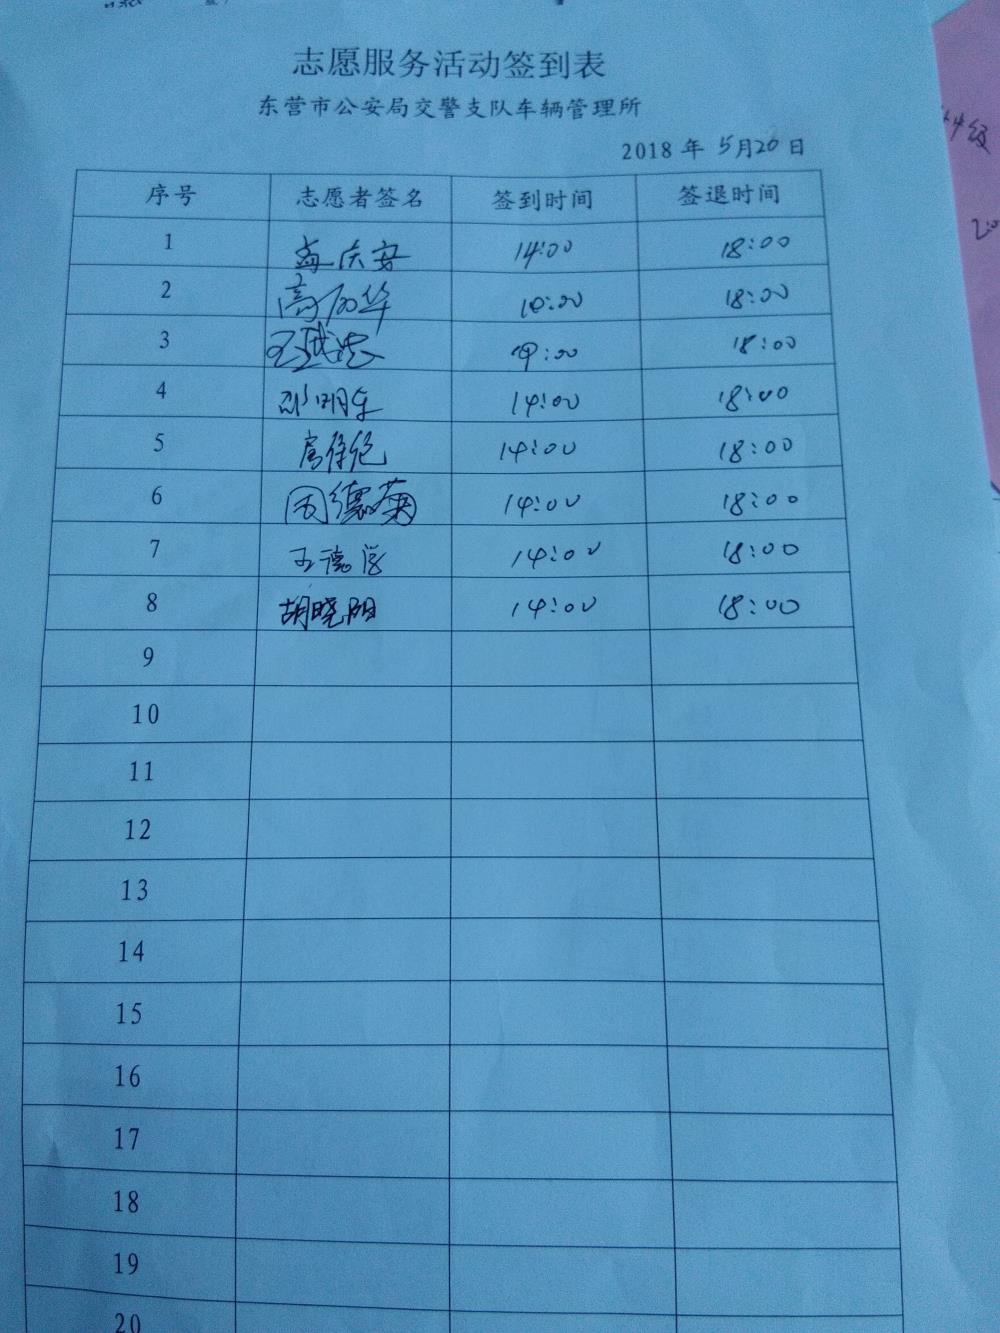 志愿服务活动签到表
东营市公安局交警支队车辆管理所
2018 年 5月20日
序号 志愿者签名 签到时间 签退时间
1 孟庆安 14:00 18:00
2 18:00
3 18:00
4 邓明车 14:00 18:00
5 14:00 18:00
6 周德菊 14:00 18:00
7 王德 14:00 18:00
8 胡晓阳 14:00 18:00
9
10
11
12
13
14
15
16
17
18
19
20